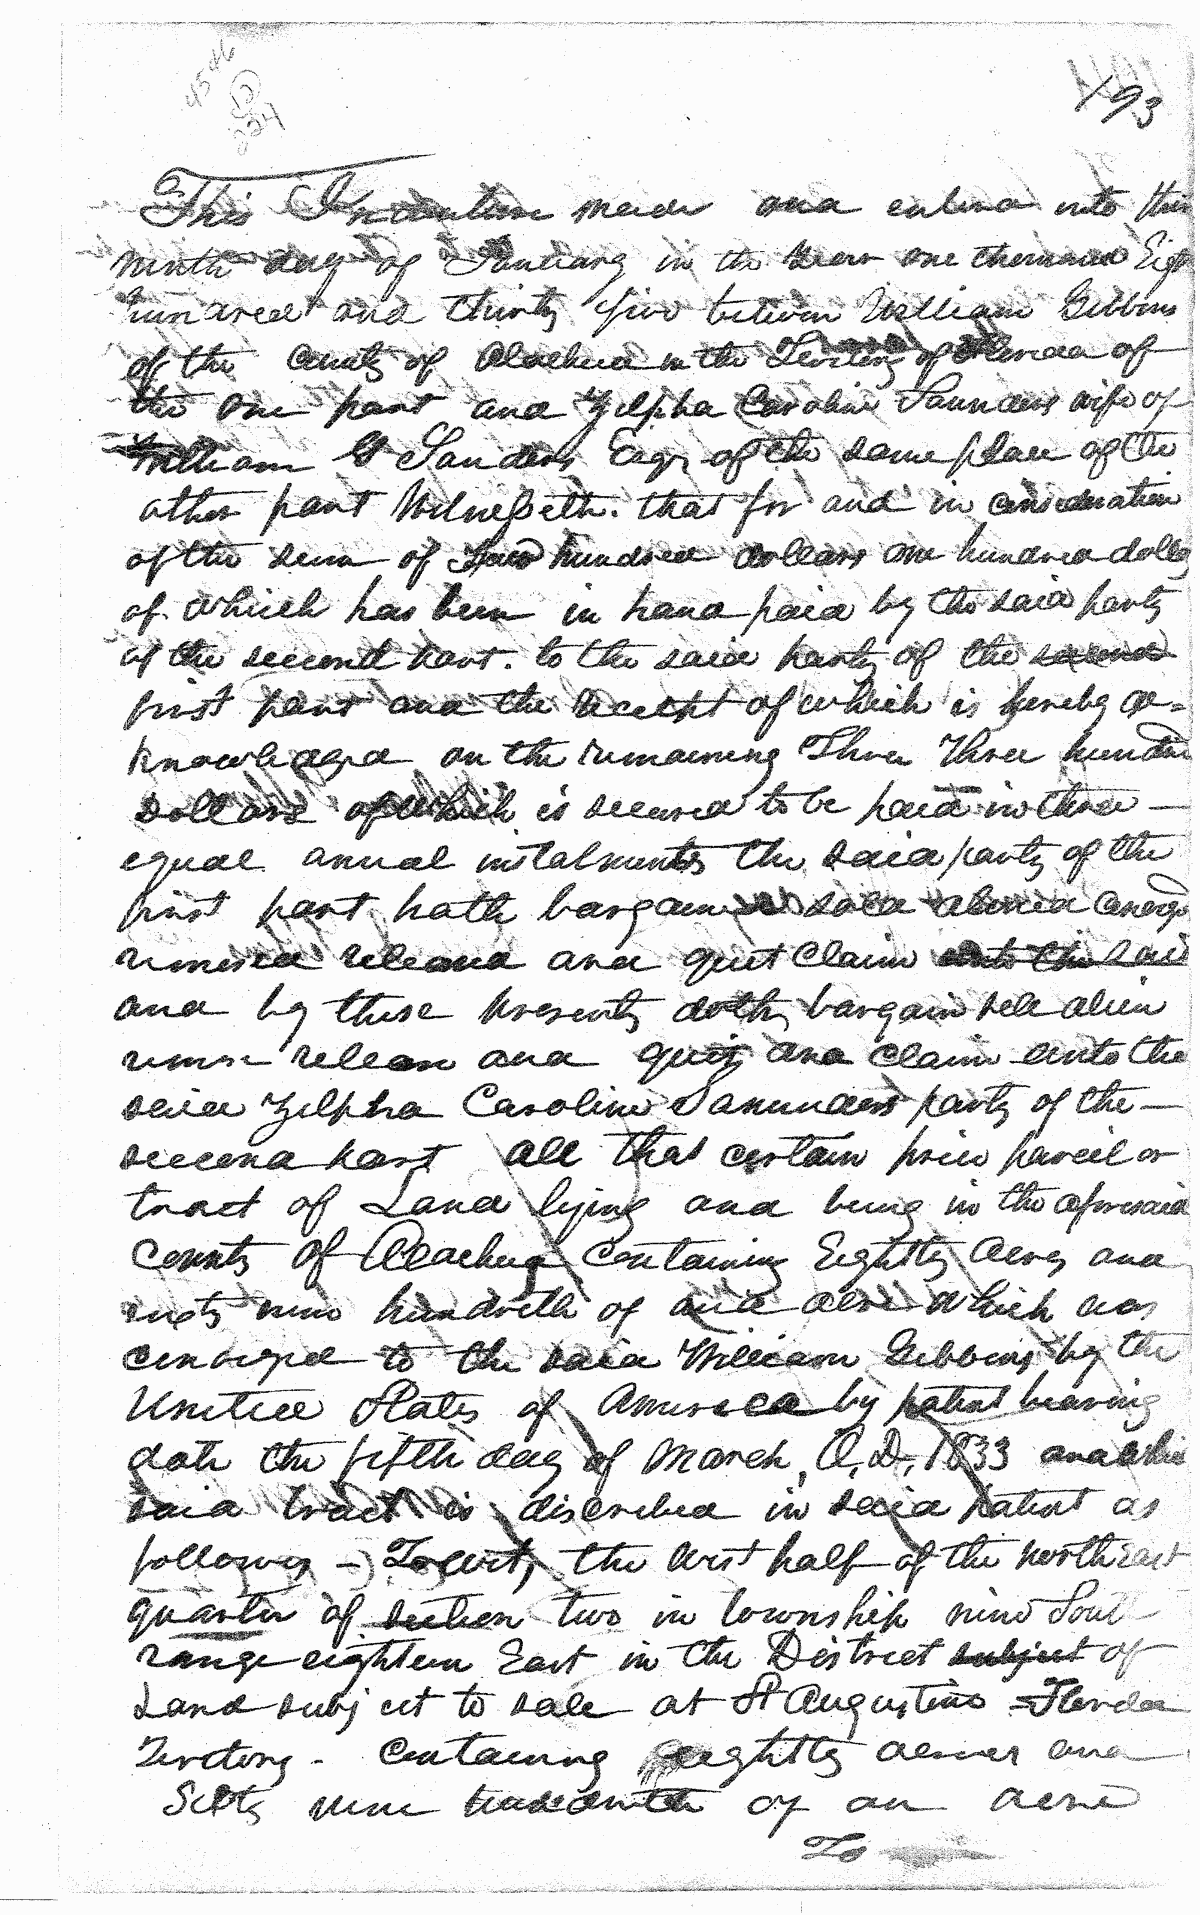 4546
224
193
This Indenture made and entered into this
ninth day of January in the year one thousand Eight
hundred and thirty five between William Gibbons
of the County of Alachua in the Territory of Florida of
the one part and Zilpha Caroline Saunders wife of
William G Sanders Esqr of the same place of the
other part Witnesseth. that for and in consideration
of the sum of Four hundred dollars one hundred dolls
of which has been in hand paid by the said party
of the second part. to the said party of the second
first part and the receipt of which is hereby ac=
knowledged on the remaining Three Three hundred
Dollars of which is secured to be paid in three —
equal annual instalments the said party of the
first part hath bargained sold aliened
remised released and quit claim unto the said
and by these presents doth bargain sell alien
remise release and quit and claim unto the
said Zilpha Caroline Sanunders party of the —
second part All that certain piece parcel or
tract of Land lying and being in the aforesaid
County of Alachua Containing Eightty Acres and
sixty nine hundreth of and acre which was
conveyed to the said William Gibbons by the
United States of America by patent bearing
date the fifth day of March A.D. 1833 and
said tract is discribed in said patent as
follows — Towit, the West half of the north East
quarter of section two in township nine South
range eighteen East in the District subject of
Land subject to sale at St Augustine Florida
Territory - Containing eightty acres and
Sixty nine hundredth of an acre
To